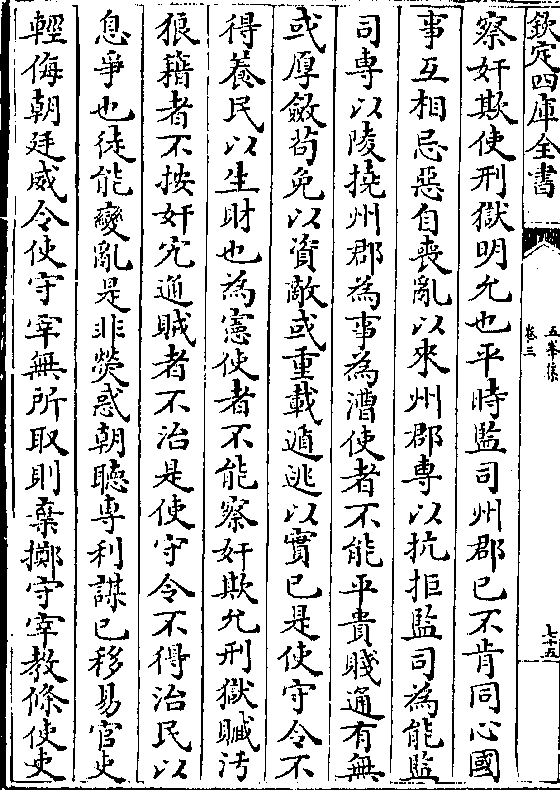 欽定四庫全書
五峯集
卷三
七十五
察奸欺使刑獄明允也平時監司州郡已不肯同心國
事互相忌惡自喪亂以來州郡專以抗拒監司為能監
司專以陵撓州郡為事為漕使者不能平貴賤通有無
或厚斂茍免以資敵或重載遁逃以實已是使守令不
得養民以生財也為憲使者不能察奸欺允刑獄贓汚
狼籍者不按奸宄逋賊者不治是使守令不得治民以
息爭也徒能變亂是非熒惑朝聽專利謀已移易官吏
輕侮朝廷威令使守宰無所取則棄擲守宰教條使吏